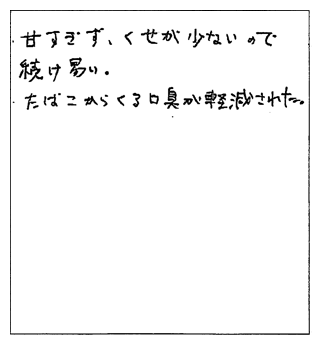 ・甘すぎず、くせが少ないので
続け易い。
・たばこからくる口臭が軽減された。